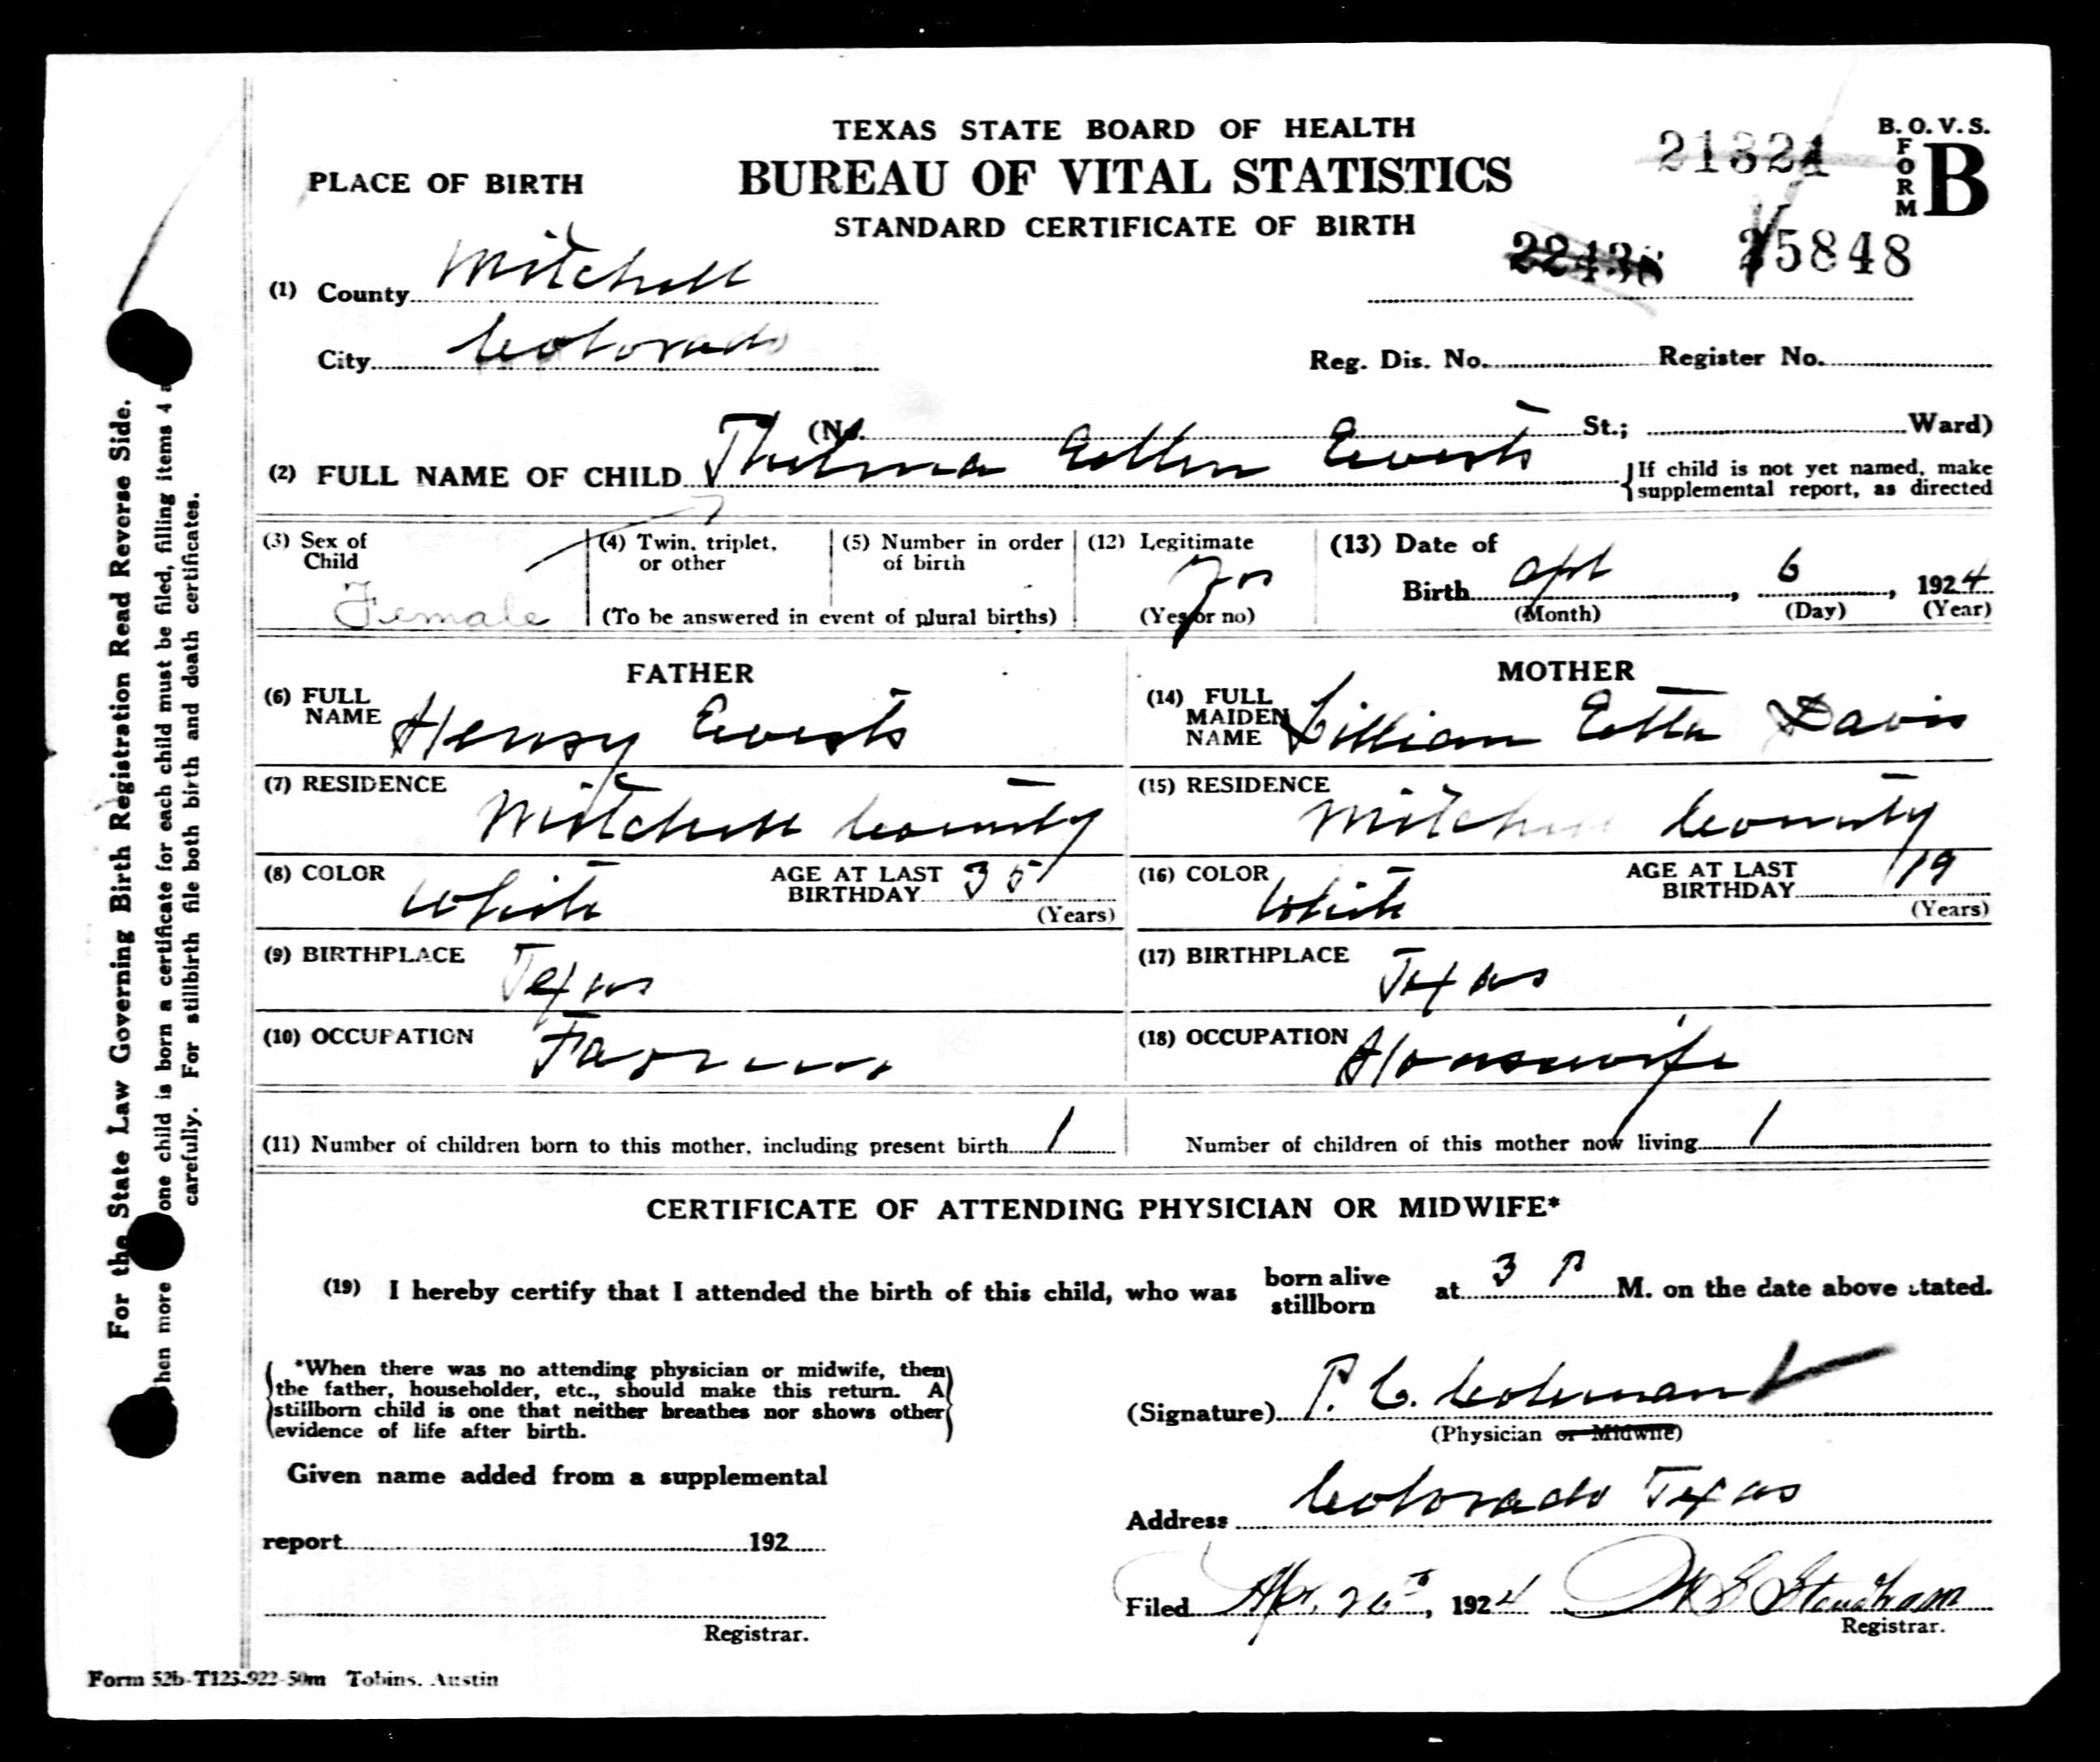 TEXAS STATE BOARD OF HEALTH
BUREAU OF VITAL STATISTICS
STANDARD CERTIFICATE OF BIRTH
B. O. V. S.
FORM B
21321
22438 25848
PLACE OF BIRTH
(1) County Mitchell
City Colorado
Reg. Dis. No. Register No.
(No. St.; Ward)
(2) FULL NAME OF CHILD Thelma Ellen Everts
If child is not yet named, make
supplemental report, as directed
(3) Sex of Child Female
(4) Twin, triplet, or other
(5) Number in order of birth
(To be answered in event of plural births)
(12) Legitimate yes
(Yes or no)
(13) Date of
Birth Apl, 6, 1924
(Month) (Day) (Year)
FATHER
(6) FULL NAME Henry Everts
(7) RESIDENCE Mitchell County
(8) COLOR White AGE AT LAST BIRTHDAY 35
(Years)
(9) BIRTHPLACE Texas
(10) OCCUPATION Farmer
MOTHER
(14) FULL MAIDEN NAME Lillian Etta Davis
(15) RESIDENCE Mitchell County
(16) COLOR White AGE AT LAST BIRTHDAY 19
(Years)
(17) BIRTHPLACE Texas
(18) OCCUPATION Housewife
(11) Number of children born to this mother, including present birth 1
Number of children of this mother now living 1
CERTIFICATE OF ATTENDING PHYSICIAN OR MIDWIFE*
(19) I hereby certify that I attended the birth of this child, who was born alive stillborn at 3 P M. on the date above stated.
*When there was no attending physician or midwife, then
the father, householder, etc., should make this return. A
stillborn child is one that neither breathes nor shows other
evidence of life after birth.
Given name added from a supplemental
report 192
Registrar.
(Signature) P. C. Coleman
(Physician or Midwife)
Address Colorado Texas
Filed Apr. 26, 1924 W S
Registrar.
Form 52b-T123-922-50m Tobins, Austin
For the State Law Governing Birth Registration Read Reverse Side.
hen more one child is born a certificate for each child must be filed, filling items 4 a
carefully. For stillbirth file both birth and death certificates.